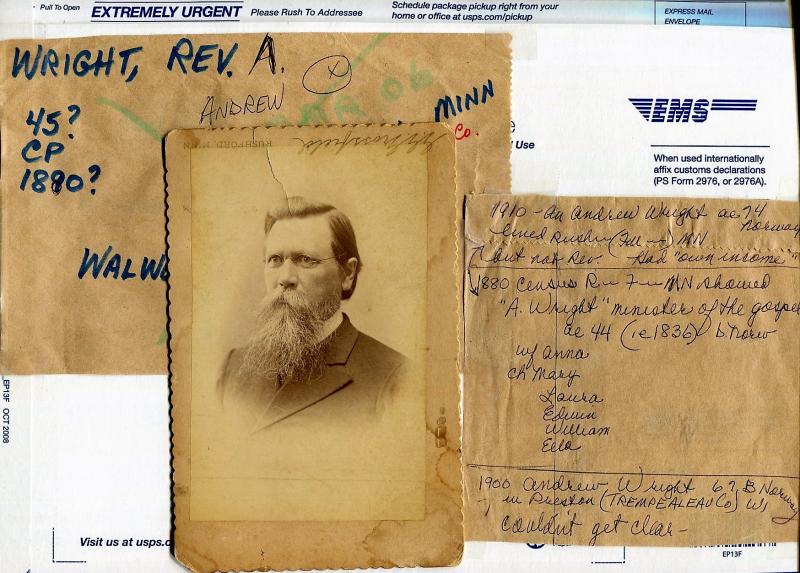 Pull To Open
EXTREMELY URGENT Please Rush To Addressee
Schedule package pickup right from your
home or office at usps.com/pickup
EXPRESS MAIL
ENVELOPE
WRIGHT, REV. A.
X
ANDREW
MAR 06
MINN
Co.
45?
CP
1880?
WALW
e
Use
EMS
When used internationally
affix customs declarations
(PS Form 2976, or 2976A).
RUSHFORD, MINN.
1910 - An Andrew Wright ae 74
Norway
lived Rush
MN
but not Rev. Had "own income"
1880 Census R 7 MN showed
"A. Wright" minister of the gospel
ae 44 (ie 1836) b Norw
w/ Anna
ch Mary
Laura
Edwin
William
Ella
1900 Andrew Wright 67, B Norway
in Preston (TREMPEALEAU Co) WI
couldn't get clear -
EP13F OCT 2008
Visit us at usps.c
EP13F